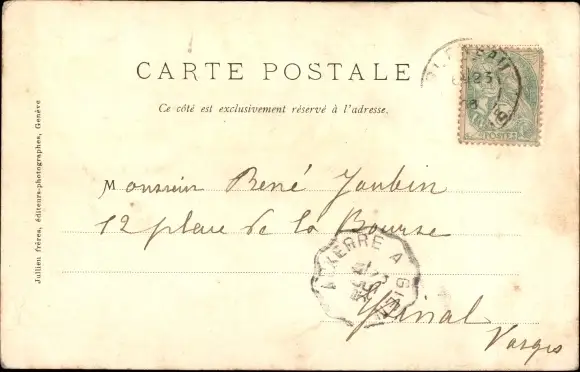 CARTE POSTALE
Ce côté est exclusivement réservé à l'adresse.
Monsieur René Joubin
12 place de la Bourse
Epinal
Vosges
Jullien frères, éditeurs-photographes, Genève
AUXERRE A GIEN
POSTES
23